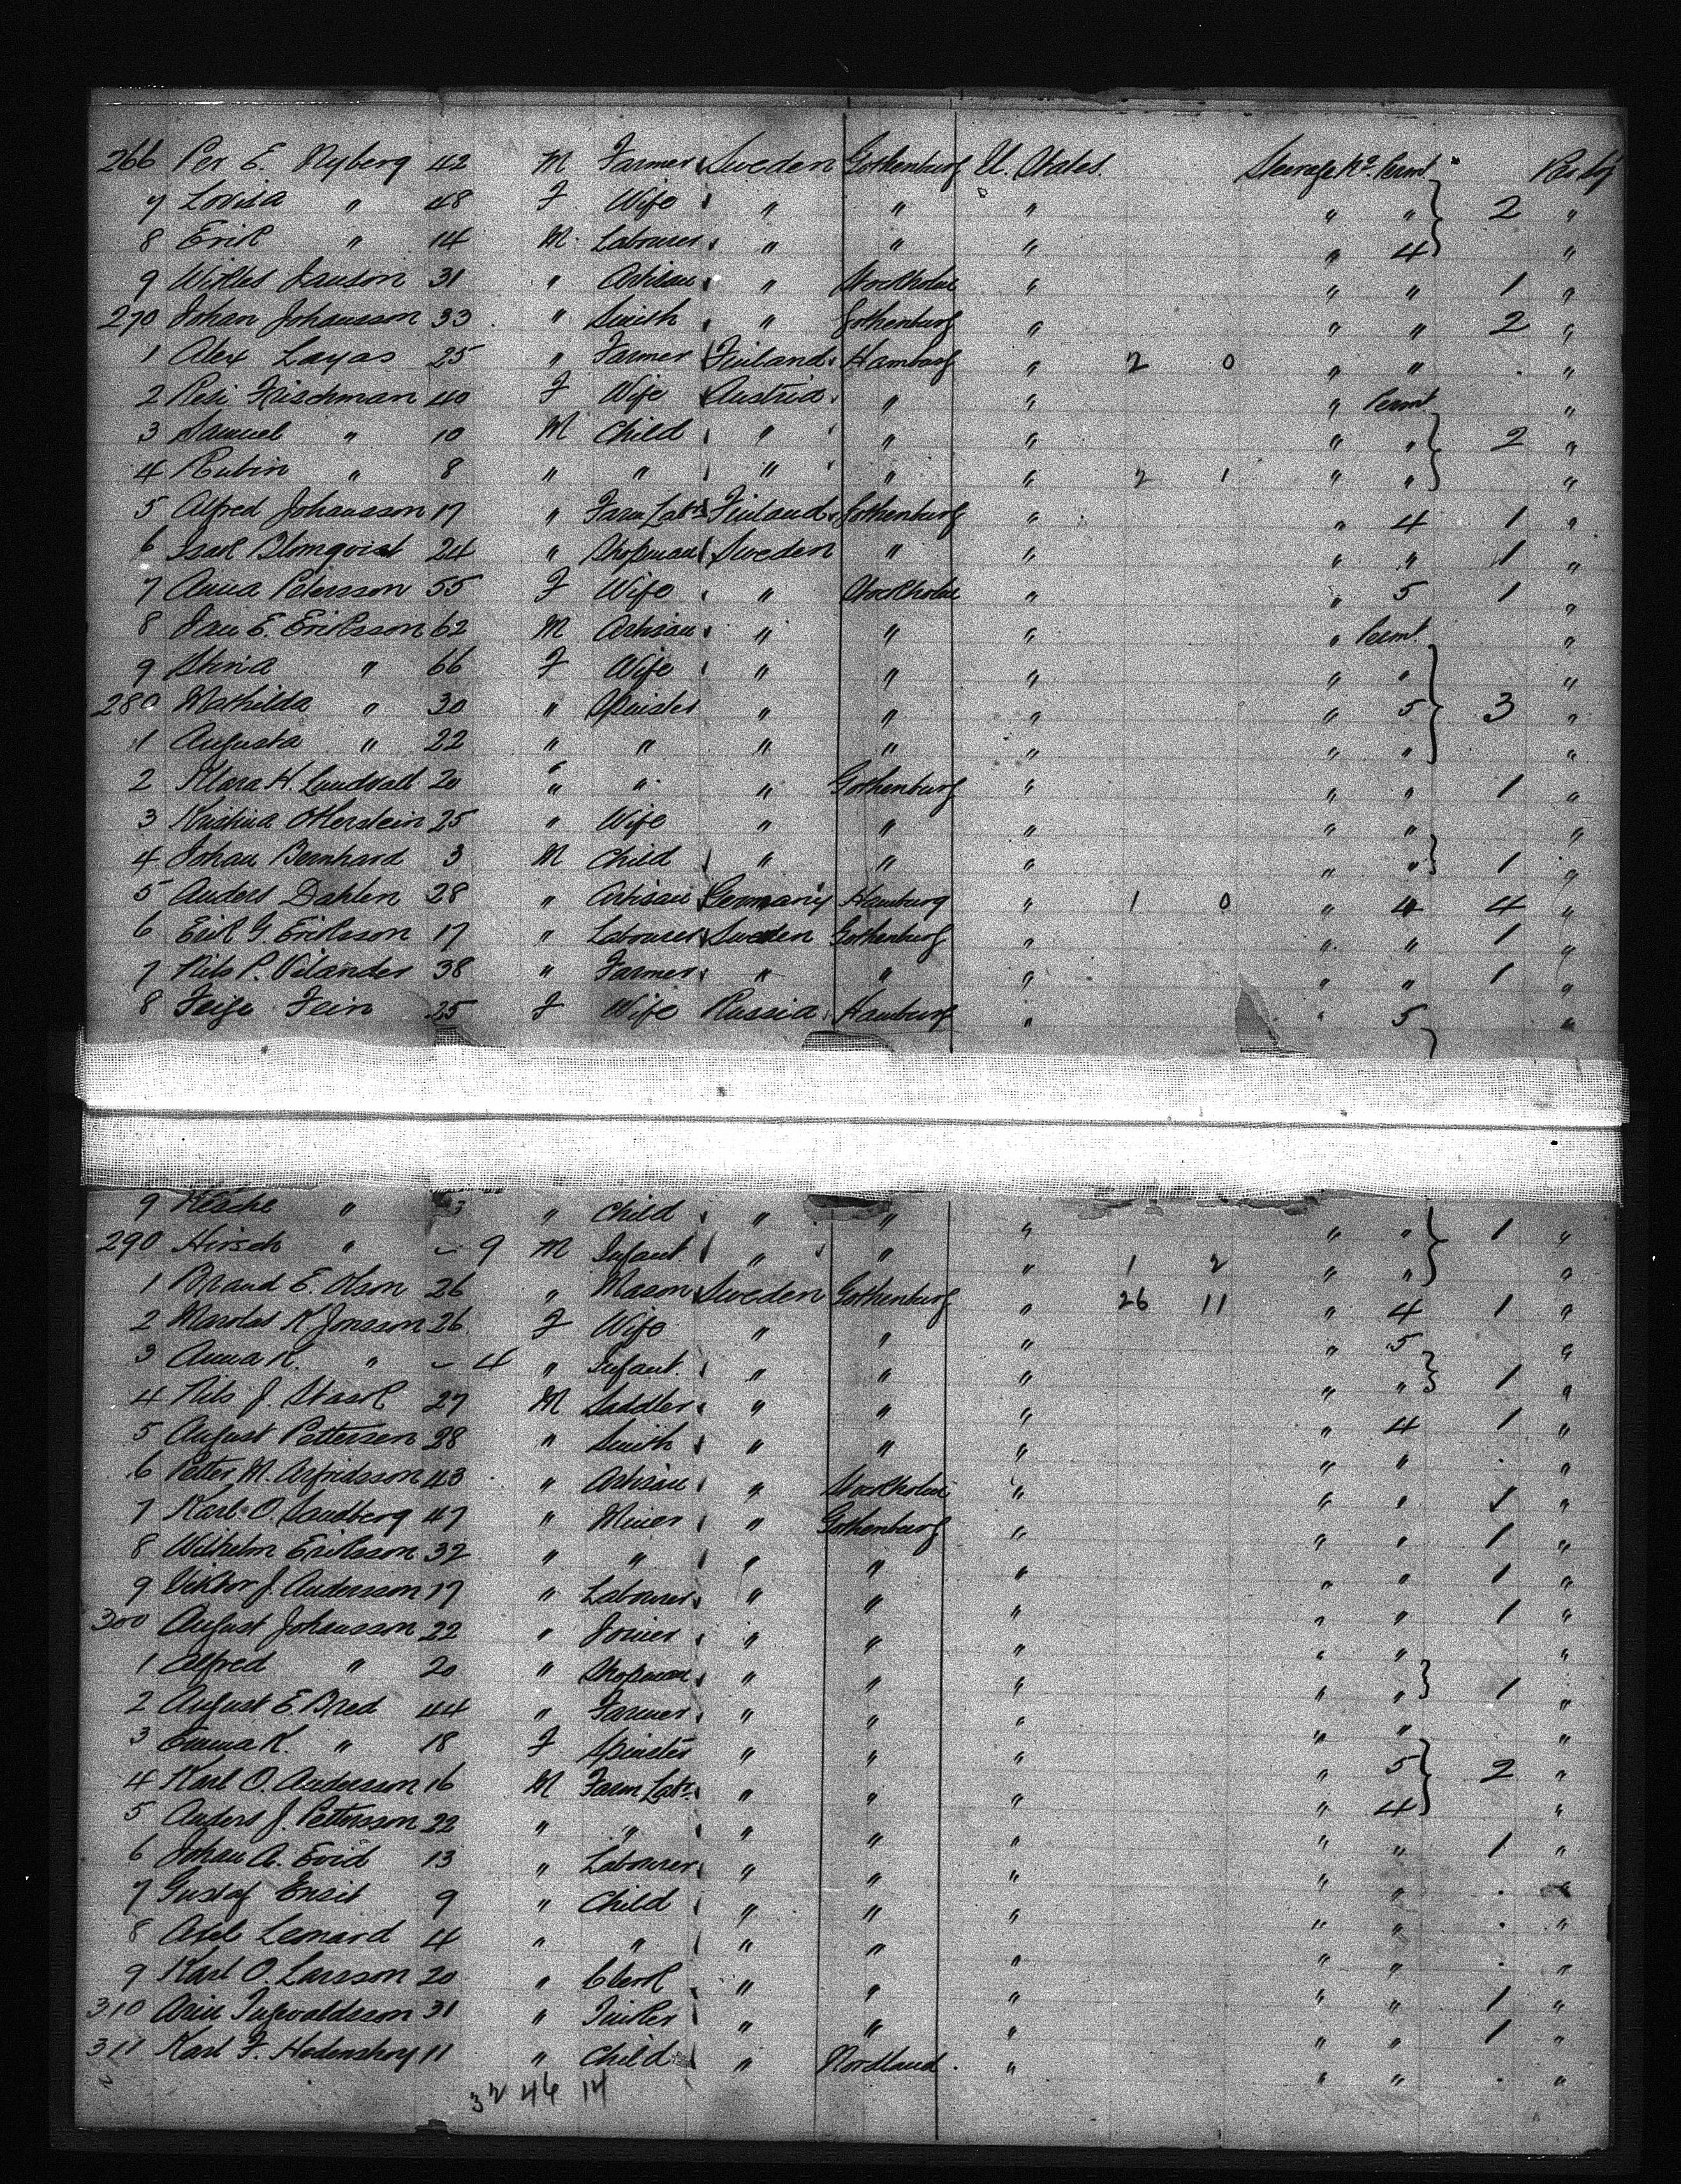 266 Per E. Nyberg 42 M Farmer Sweden Gothenburg U. States. Steerage Nº Permt
7 Lovisa " 48 F Wife " " " " " 2 "
8 Erik " 14 M Labourer " " " " 4 "
9 Janson 31 " Artisan " Stockholm " " " 1 "
270 Johan Johansson 33 " Smith " Gothenburg " " " 2 "
1 Alex Layas 25 " Farmer Finland Hamburg " 2 0 " " "
2 Resi Frischman 40 F Wife Austria " " " Permt "
3 Samuel " 10 M Child " " " " " 2 "
4 Rubin " 8 " " " " " 2 1 " " "
5 Alfred Johansson 17 " Farm Labr Finland Gothenburg " " 4 1 "
6 Blomqvist 24 " Shopman Sweden " " " " 1 "
7 Anna Petersson 55 F Wife " Stockholm " " 5 1 "
8 Jan E. Eriksson 62 M Artisan " " " " Permt "
9 Stina " 66 F Wife " " " " " "
280 Mathilda " 30 " Spinster " " " " 5 3 "
1 Augusta " 22 " " " " " " " "
2 Klara H. Lundvall 20 " " " Gothenburg " " " 1 "
3 Kristina Otterstein 25 " Wife " " " " " "
4 Johan Bernhard 3 M Child " " " " " 1 "
5 Anders Dahlen 28 " Artisan Germany Hamburg " 1 0 " 4 4 "
6 Erik G. Eriksson 17 " Labourer Sweden Gothenburg " " " 1 "
7 Nils P. Vilander 38 " Farmer " " " " " 1 "
8 Feige Fein 25 F Wife Russia Hamburg " " 5 "
9 Hesche " 3 " Child " " " " " 1 "
290 Hirsch " - 9 M Infant " " " 1 2 " " "
1 E. Olson 26 " Mason Sweden Gothenburg " 26 11 " 4 1 "
2 K Jonsson 26 F Wife " " " " 5 "
3 Anna K. " - 4 " Infant " " " " " 1 "
4 Nils J. Stark 27 M Saddler " " " " 4 1 "
5 August Pettersen 28 " Smith " " " " " "
6 Petter M. Arfridsson 43 " Artisan " Stockholm " " " 1 "
7 Karl O. Sandberg 47 " Miner " Gothenburg " " " 1 "
8 Wilhelm Eriksson 32 " " " " " " " 1 "
9 Viktor J. Andersson 17 " Labourer " " " " " 1 "
300 August Johansson 22 " Joiner " " " " " "
1 Alfred " 20 " Shopman " " " " " 1 "
2 August E. Bred 44 " Farmer " " " " " "
3 Emma K. " 18 F Spinster " " " " 5 2 "
4 Karl O. Anderson 16 M Farm Labr " " " " 4 "
5 Anders J. Pettersson 22 " " " " " " " 1 "
6 Johan A. 13 " Labourer " " " " " "
7 Gustaf 9 " Child " " " " " "
8 Axel Lenard 4 " " " " " " " "
9 Karl O. Larsson 20 " Clerk " " " " " 1 "
310 Ingvaldsson 31 " " " " " " 1 "
311 Karl F. 11 " Child " Nordland " " " "
32 46 14